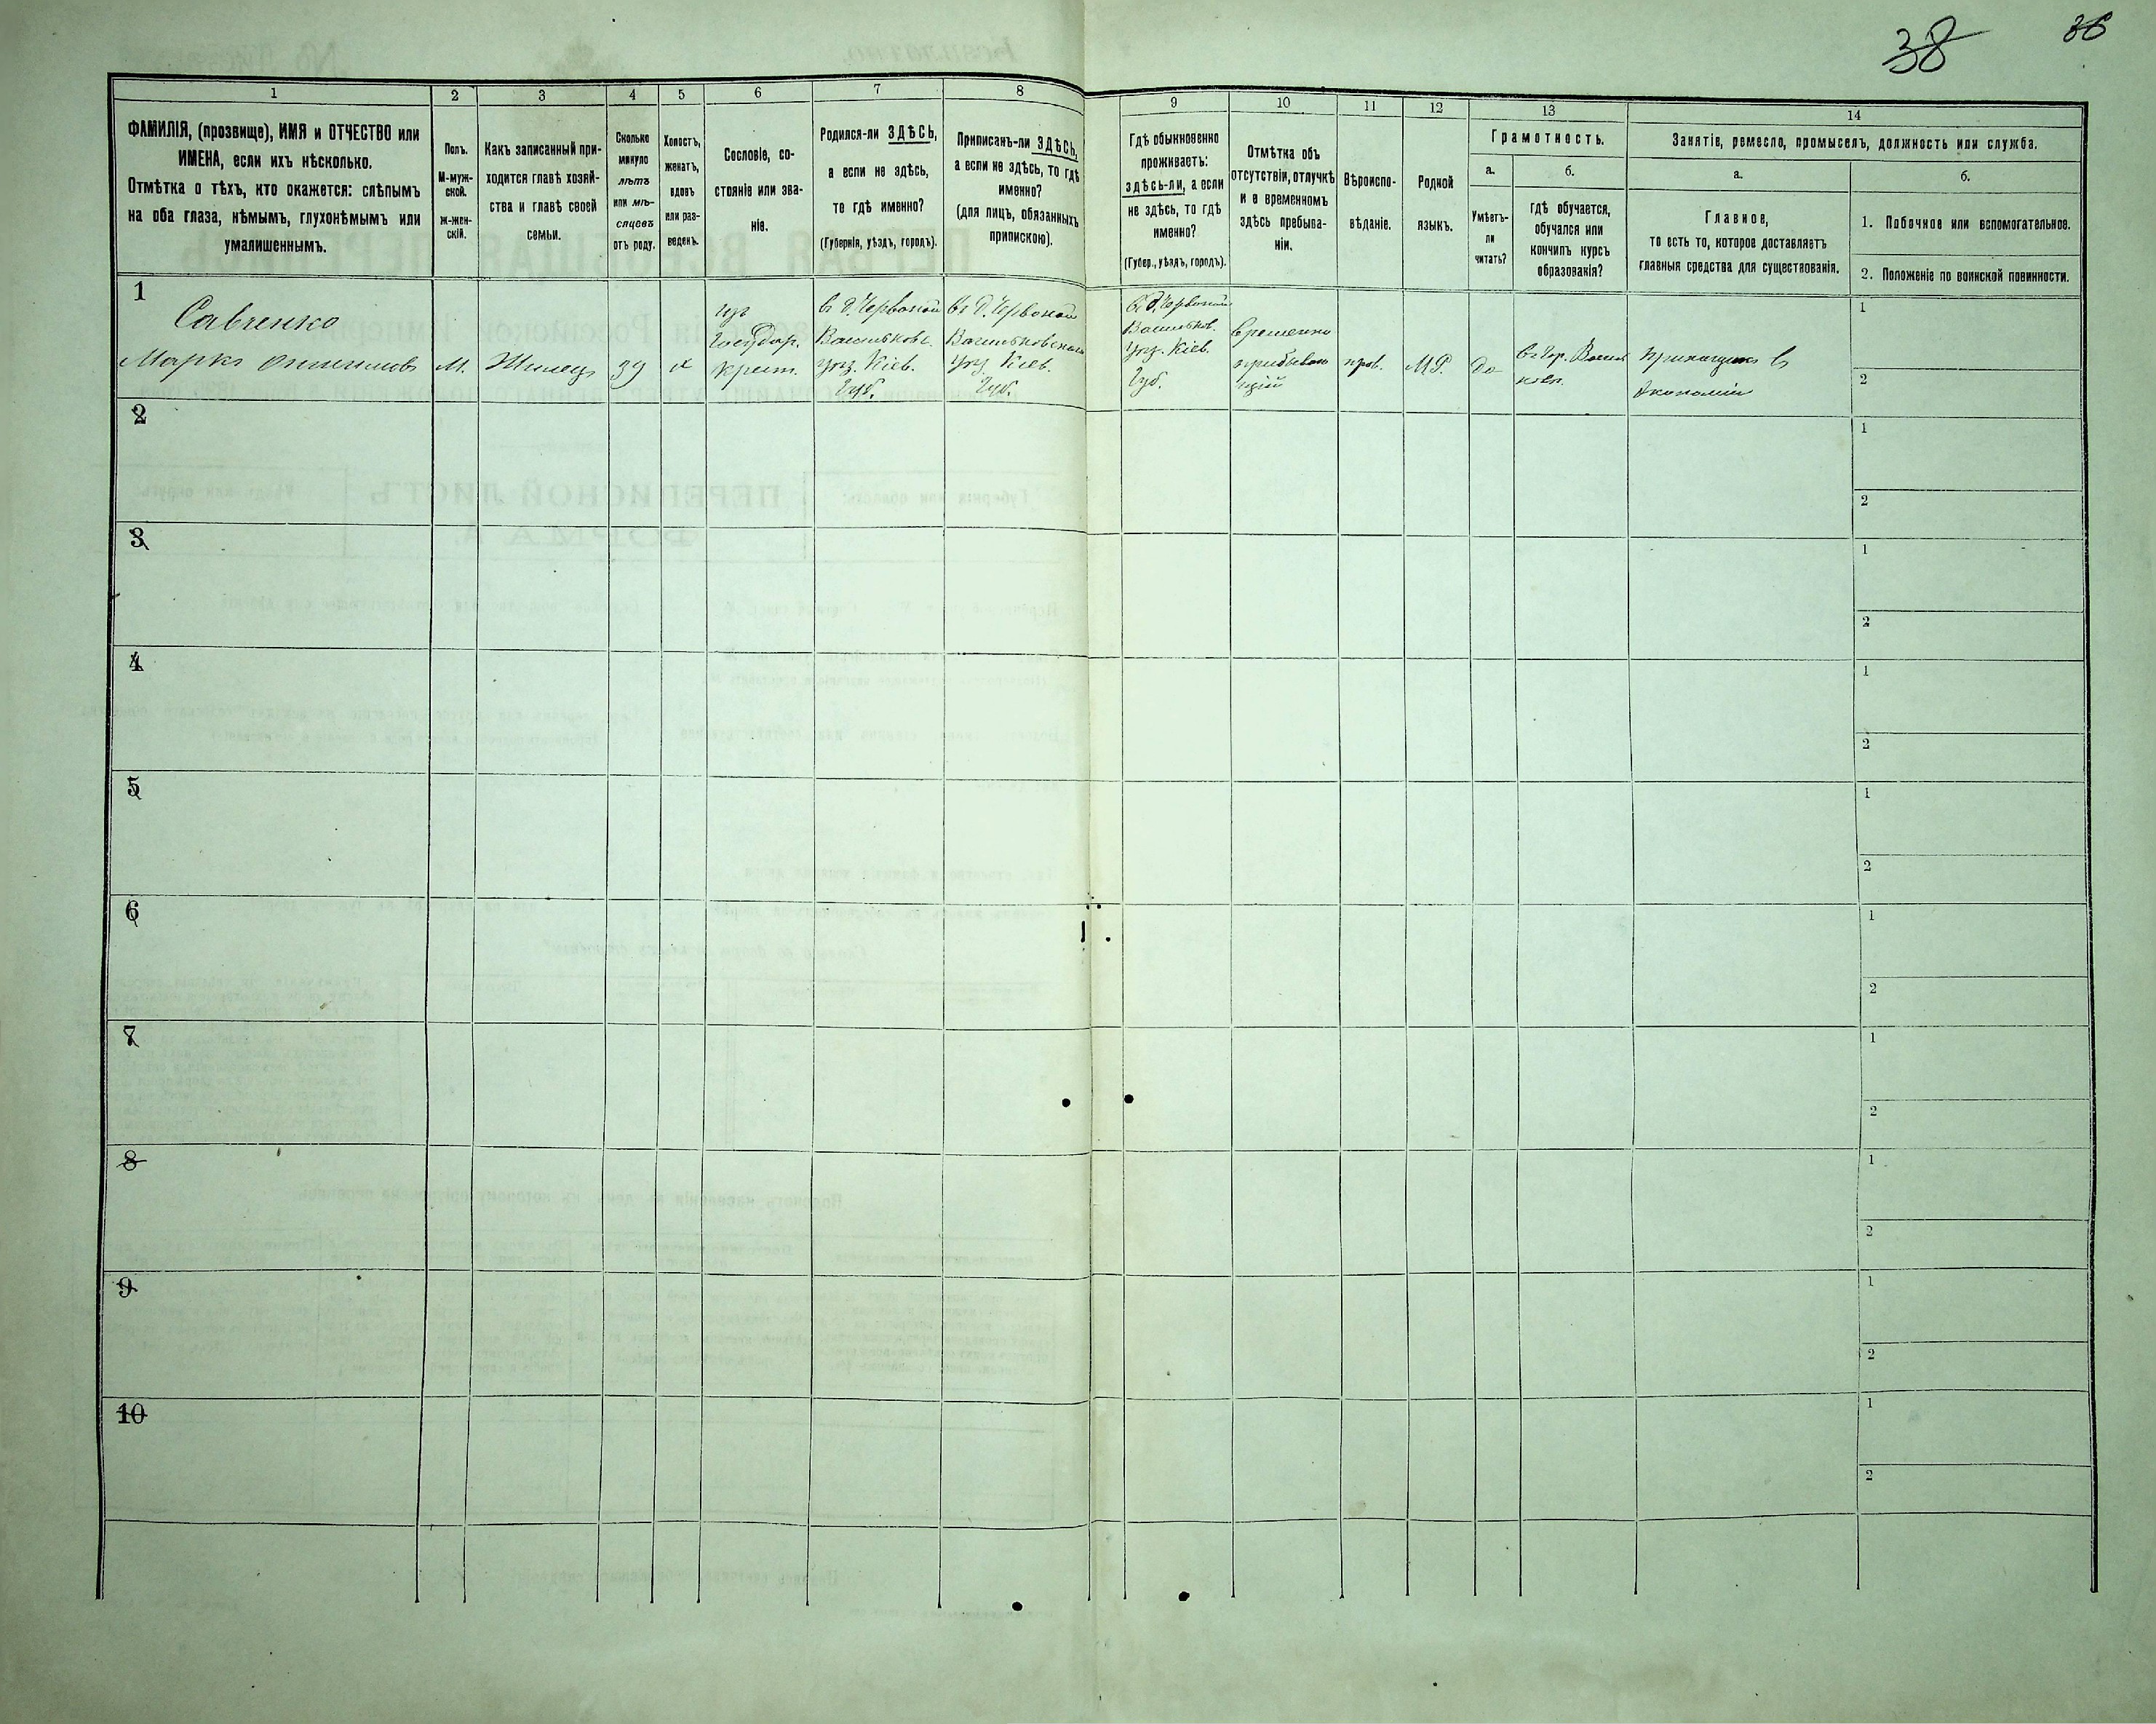 38 36
1
2
3
4
5
6
7
8
9
10
11
12
13
14
ФАМИЛІЯ, (прозвище), ИМЯ и ОТЧЕСТВО или
ИМЕНА, если ихъ нѣсколько.
Отмѣтка о тѣхъ, кто окажется: слѣпымъ
на оба глаза, нѣмымъ, глухонѣмымъ или
умалишеннымъ.
Полъ.
М-муж-
ской.
Ж-жен-
скій.
Какъ записанный при-
ходится главѣ хозяй-
ства и главѣ своей
семьи.
Сколько
минуло
лѣтъ
или мѣ-
сяцевъ
отъ роду.
Холостъ,
женатъ,
вдовъ
или раз-
веденъ.
Сословіе, со-
стояніе или зва-
ніе.
Родился-ли ЗДѢСЬ,
а если не здѣсь,
то гдѣ именно?
(Губернія, уѣздъ, городъ).
Приписанъ-ли ЗДѢСЬ,
а если не здѣсь, то гдѣ
именно?
(для лицъ, обязанныхъ
припискою).
Гдѣ обыкновенно
проживаетъ:
здѣсь-ли, а если
не здѣсь, то гдѣ
именно?
(Губер., уѣздъ, городъ).
Отмѣтка объ
отсутствіи, отлучкѣ
и о временномъ
здѣсь пребыва-
ніи.
Вѣроиспо-
вѣданіе.
Родной
языкъ.
Грамотность.
а.
Умѣетъ-
ли
читать?
б.
гдѣ обучается,
обучался или
кончилъ курсъ
образованія?
Занятіе, ремесло, промыселъ, должность или служба.
а.
Главное,
то есть то, которое доставляетъ
главныя средства для существованія.
б.
1. Побочное или вспомогательное.
2. Положеніе по воинской повинности.
1
Савченко
Марко
М.
Жилец
39
х
из
Государ.
крест.
в д. Червоной
Васильковс.
уѣз. Кіев.
Губ.
в д. Червоной
Васильковскаго
уѣз. Кіев.
Губ.
в д. Червоной
Васильков.
уѣз. Кіев.
Губ.
временно
пребываю
щій
прав.
М.Р.
да
в гор. Василь
ков.
приказчик в
экономіи
1
2
2
1
2
3
1
2
4
1
2
5
1
2
6
1
2
7
1
2
8
1
2
9
1
2
10
1
2